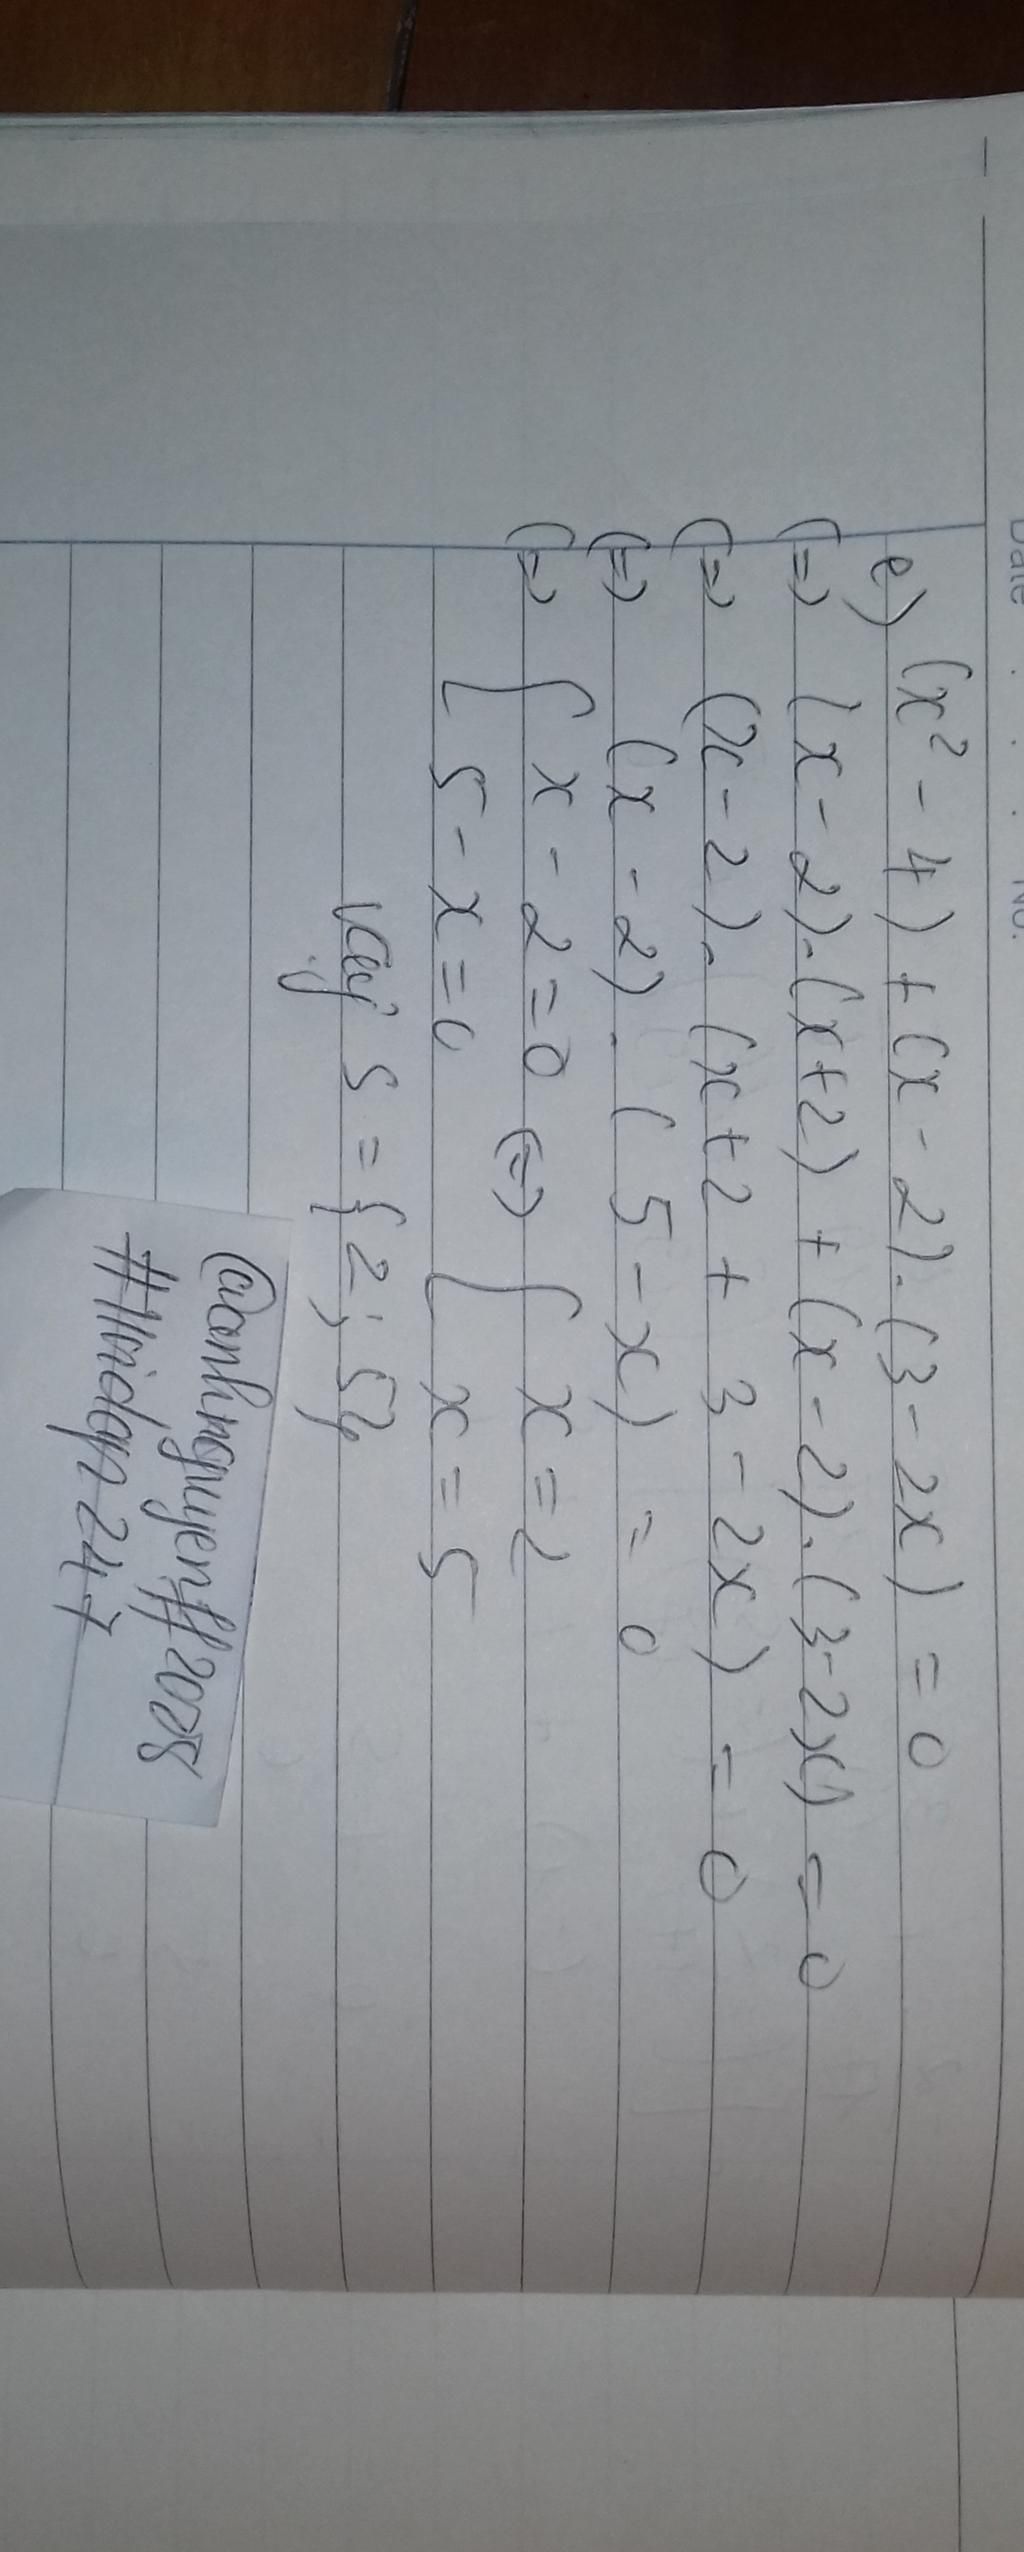 Date . . . No.
e) (x² - 4) + (x - 2).(3 - 2x) = 0
(=) (x - 2).(x+2) + (x - 2).(3-2x) = 0
(=) (x - 2).(x+2 + 3 - 2x) = 0
(=) (x - 2).(5 - x) = 0
(=) [ x - 2 = 0 (=) [ x = 2
5 - x = 0 x = 5
Vậy S = { 2 ; 5}
@anhnguyenff2008
#Hoidap247